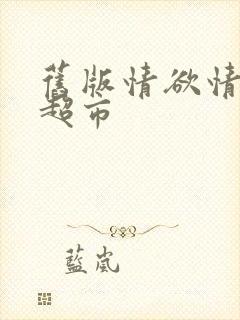 舊版情欲情
超市
藍嵐